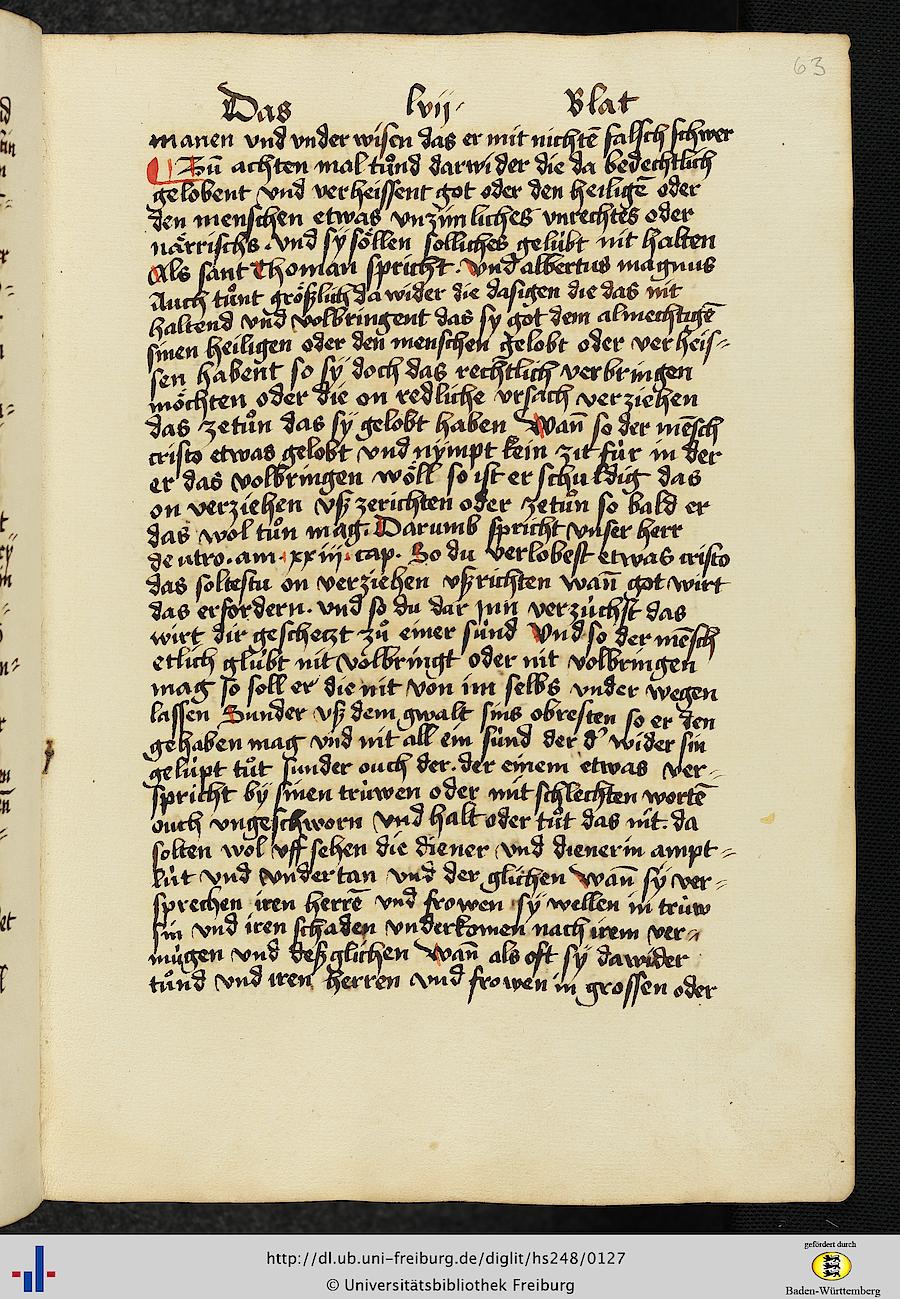 63
Das lvij· Blat
manen vnd vnder wisen das er mit nichtē falsch schwer
Zů achten mal tůnd darwider die da bedechtlich
gelobent vnd verheissent got oder den heiligē oder
den menschen etwas vnzimliches vnrechtes oder
närrischs. vnd sÿ söllen solliches gelübt nit halten
Als sant Thoman spricht. vnd albertus magnus
Auch tůnt größlich da wider die dasigen die das nit
haltend vnd volbringent das sy got dem almechtigē
sinen heiligen oder den menschen gelobt oder verheis-
sen habent so sÿ doch das rechtlich verbringen
möchten oder die on redliche vrsach verziehen
das zetůn das sÿ gelobt haben Wañ so der mēsch
cristo etwas gelobt vnd nÿmpt kein zit für in der
er das volbringen wöll so ist er schuldig das
on verziehen vß zerichten oder zetůn so bald er
das wol tůn mag. Darumb spricht vnser herr
de utro. am. xxiij. cap. So du verlobest etwas cristo
das soltestu on verziehen vßrichten wañ got wirt
das erfordern. vnd so du dar jnn verzüchst das
wirt dir geschetzt zů einer sünd Vnd so der mēsch
etlich glübt nit volbringt oder nit volbringen
mag so soll er die nit von im selbs vnder wegen
lassen Sunder vß dem gwalt sins obresten so er den
gehaben mag vnd nit allein sünd der d' wider sin
gelüpt tůt sunder ouch der. der einem etwas ver-
spricht bÿ sinen trüwen oder mit schlechten wortē
ouch vngeschworn vnd halt oder tůt das nit. da
solten wol vff sehen die diener vnd dienerin ampt-
lüt vnd vndertan vnd der glichen Wañ sÿ ver-
sprechen iren herrē vnd frowen sÿ wellen in trüw
sin vnd iren schaden vnderkomen nach irem ver-
mügen vnd deßglichen Wañ als oft sÿ dawider
tůnd vnd iren herren vnd frowen in grossen oder
http://dl.ub.uni-freiburg.de/diglit/hs248/0127
© Universitätsbibliothek Freiburg
gefördert durch
Baden-Württemberg